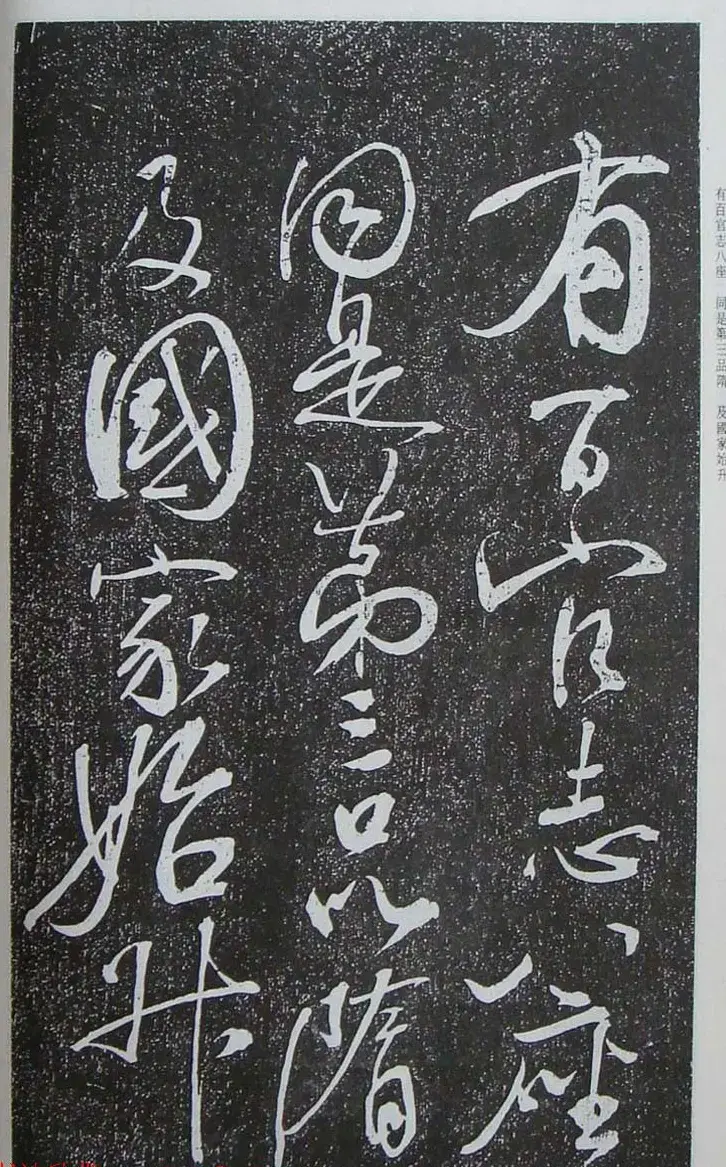 有百官志八座
同是第三品隋
及國家始升
有百官志八座 同是第三品隋 及國家始升